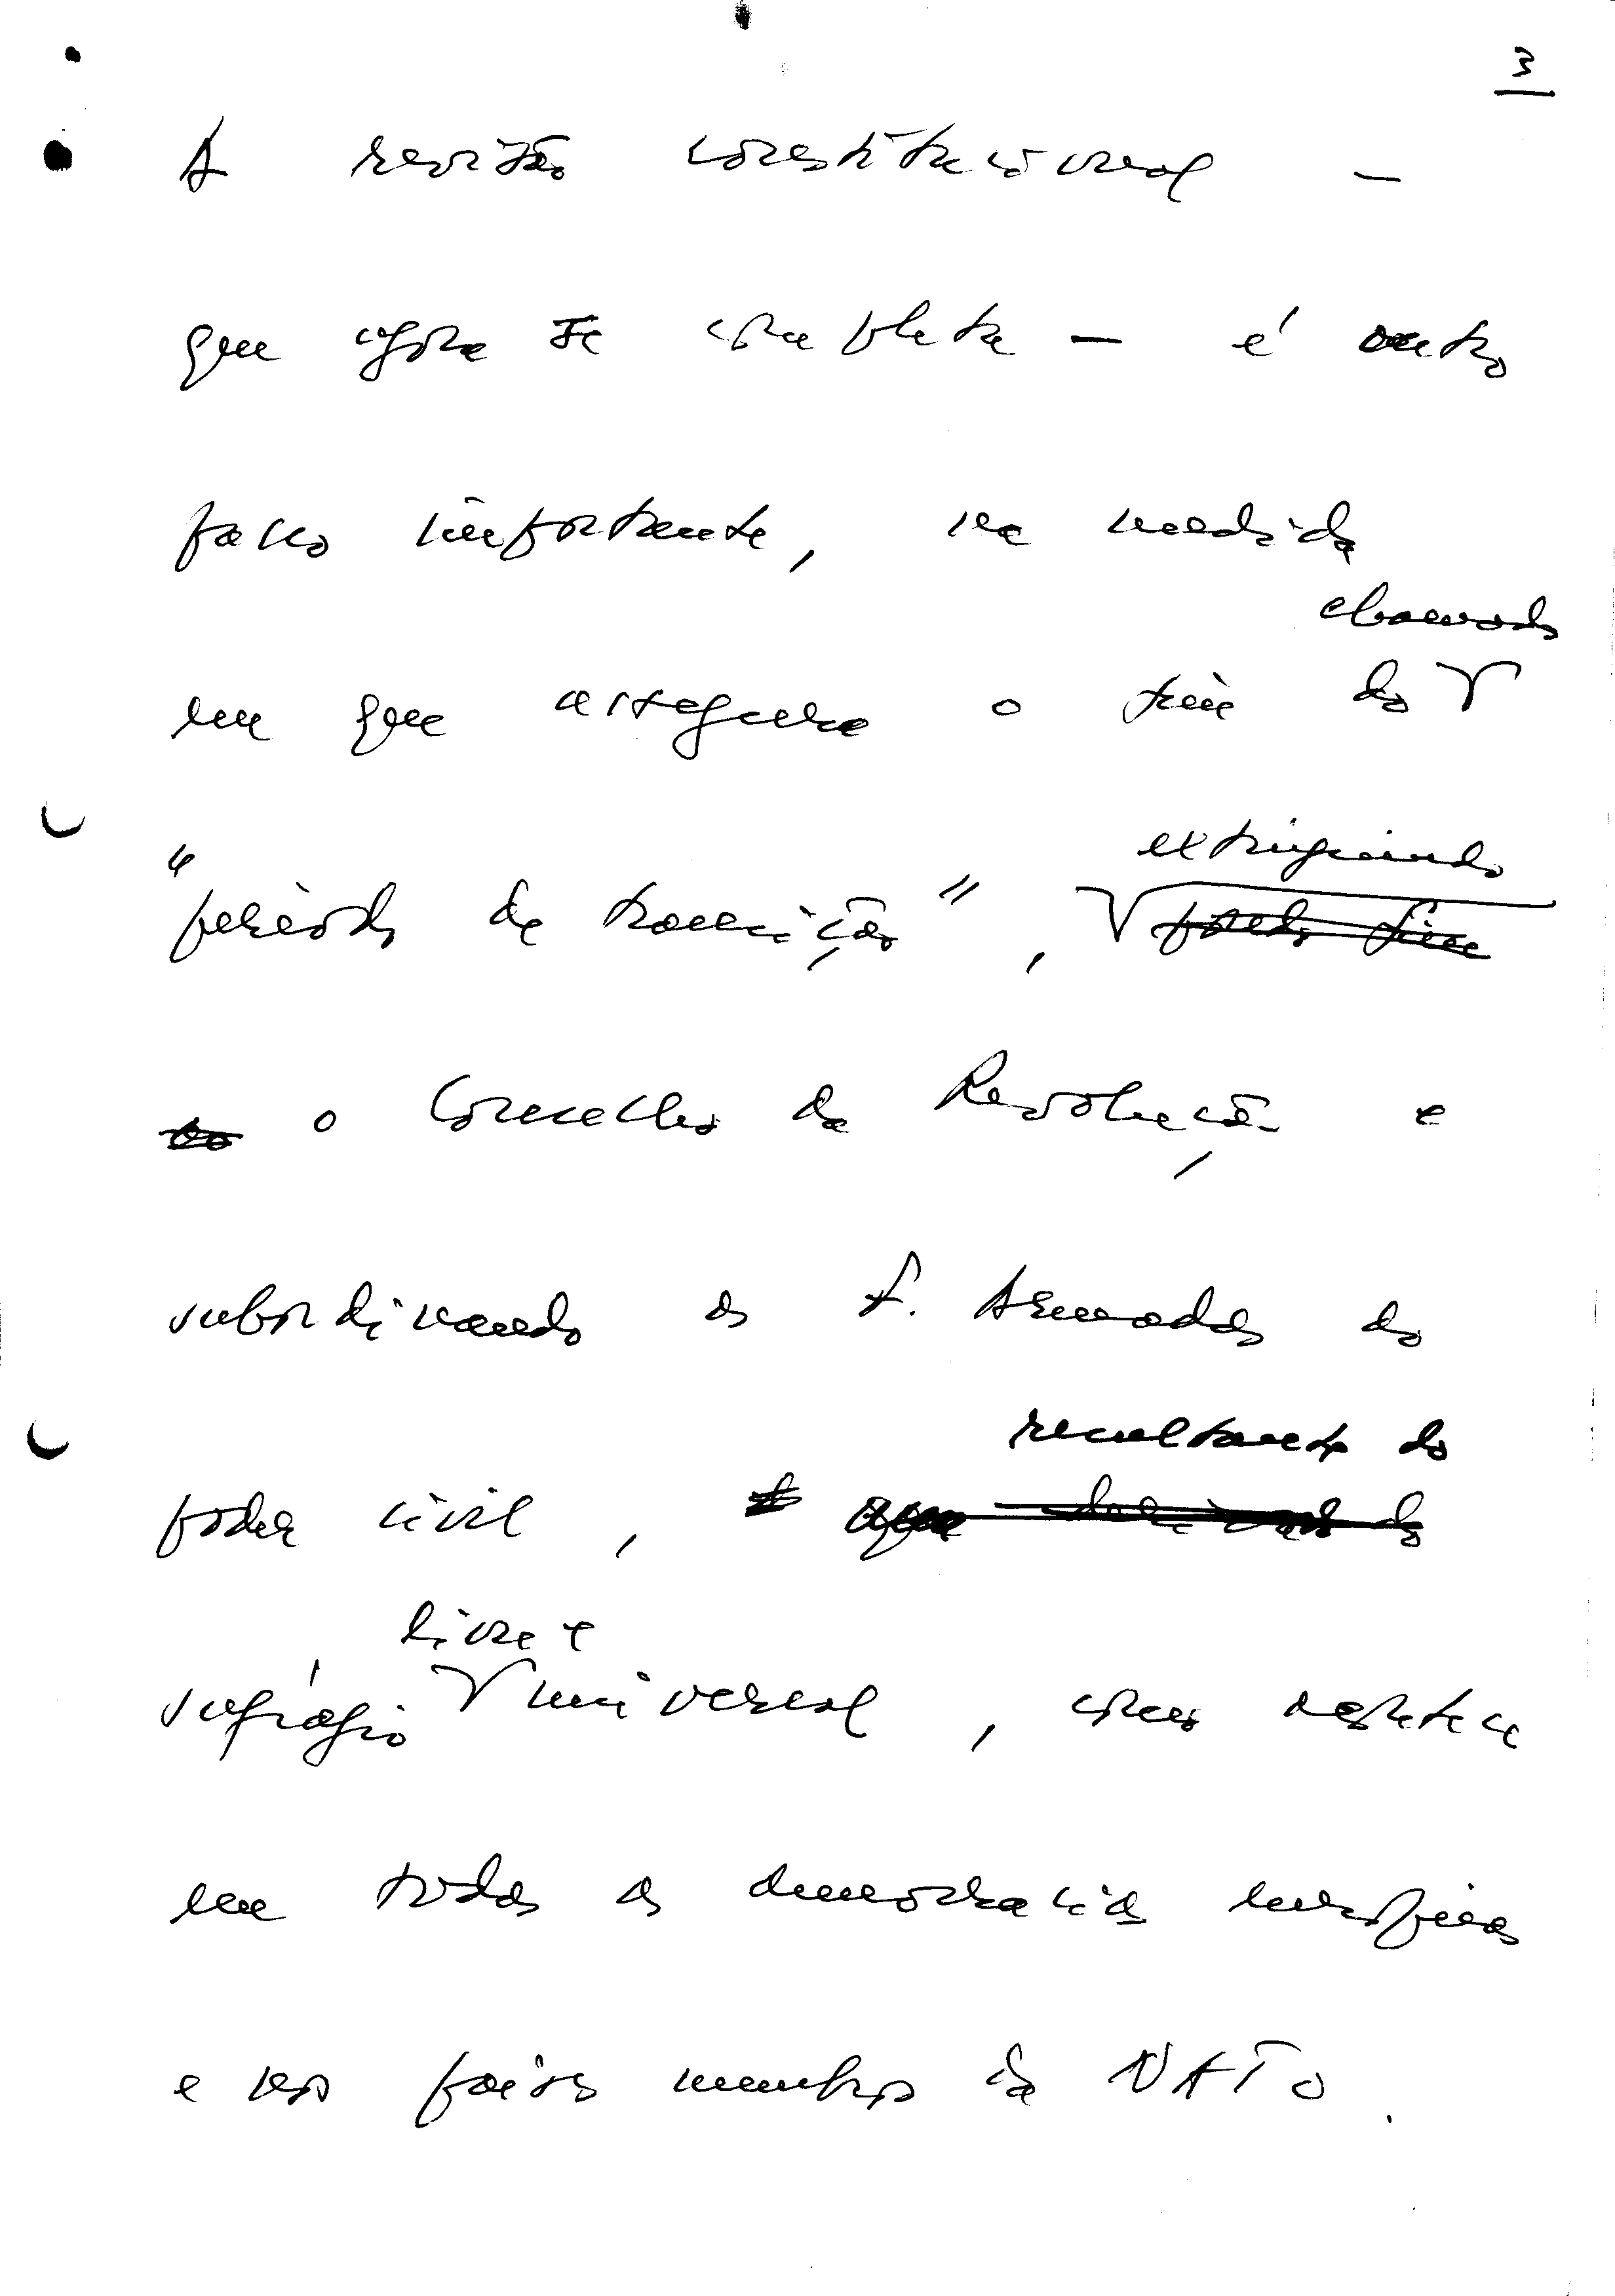 3
A revisão constitucional –
que agora se completa – é outro
passo importante, na medida
chamado
em que assegura o fim do
"período de transição", 
extinguindo
ponto fim
ao o Conselho da Revolução e
subordinando as F. Armadas ao
resultante do
poder civil, que derivado do
livre e
sufrágio universal, como acontece
em todas as democracias europeias
e nos países membros da NATO.